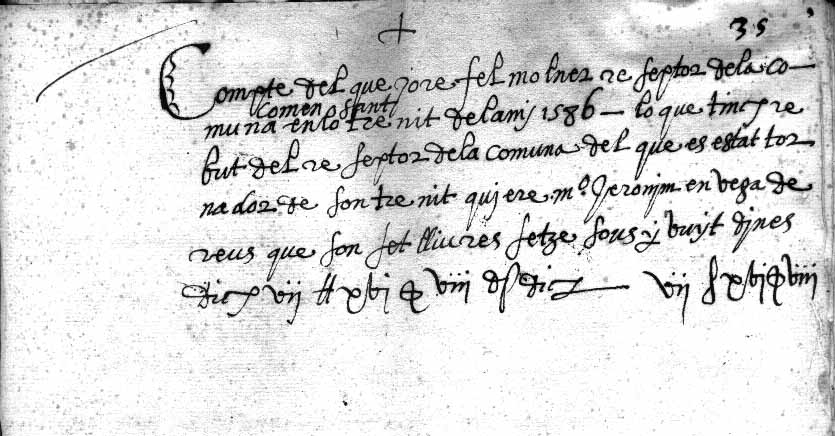 35
Compte del que jo refel molner re septor dela co-
comensant
muna en lo tre nit del anj 1586 - lo que tinch re
but del re septor dela comuna del que es estat tor
nador de son tre nit qui ere mº Jeronjm en vega de
reus que son set lliures setze sous y vuyt djnes
dich vii ll xvi s viii ds dich vii ll xvi s viii